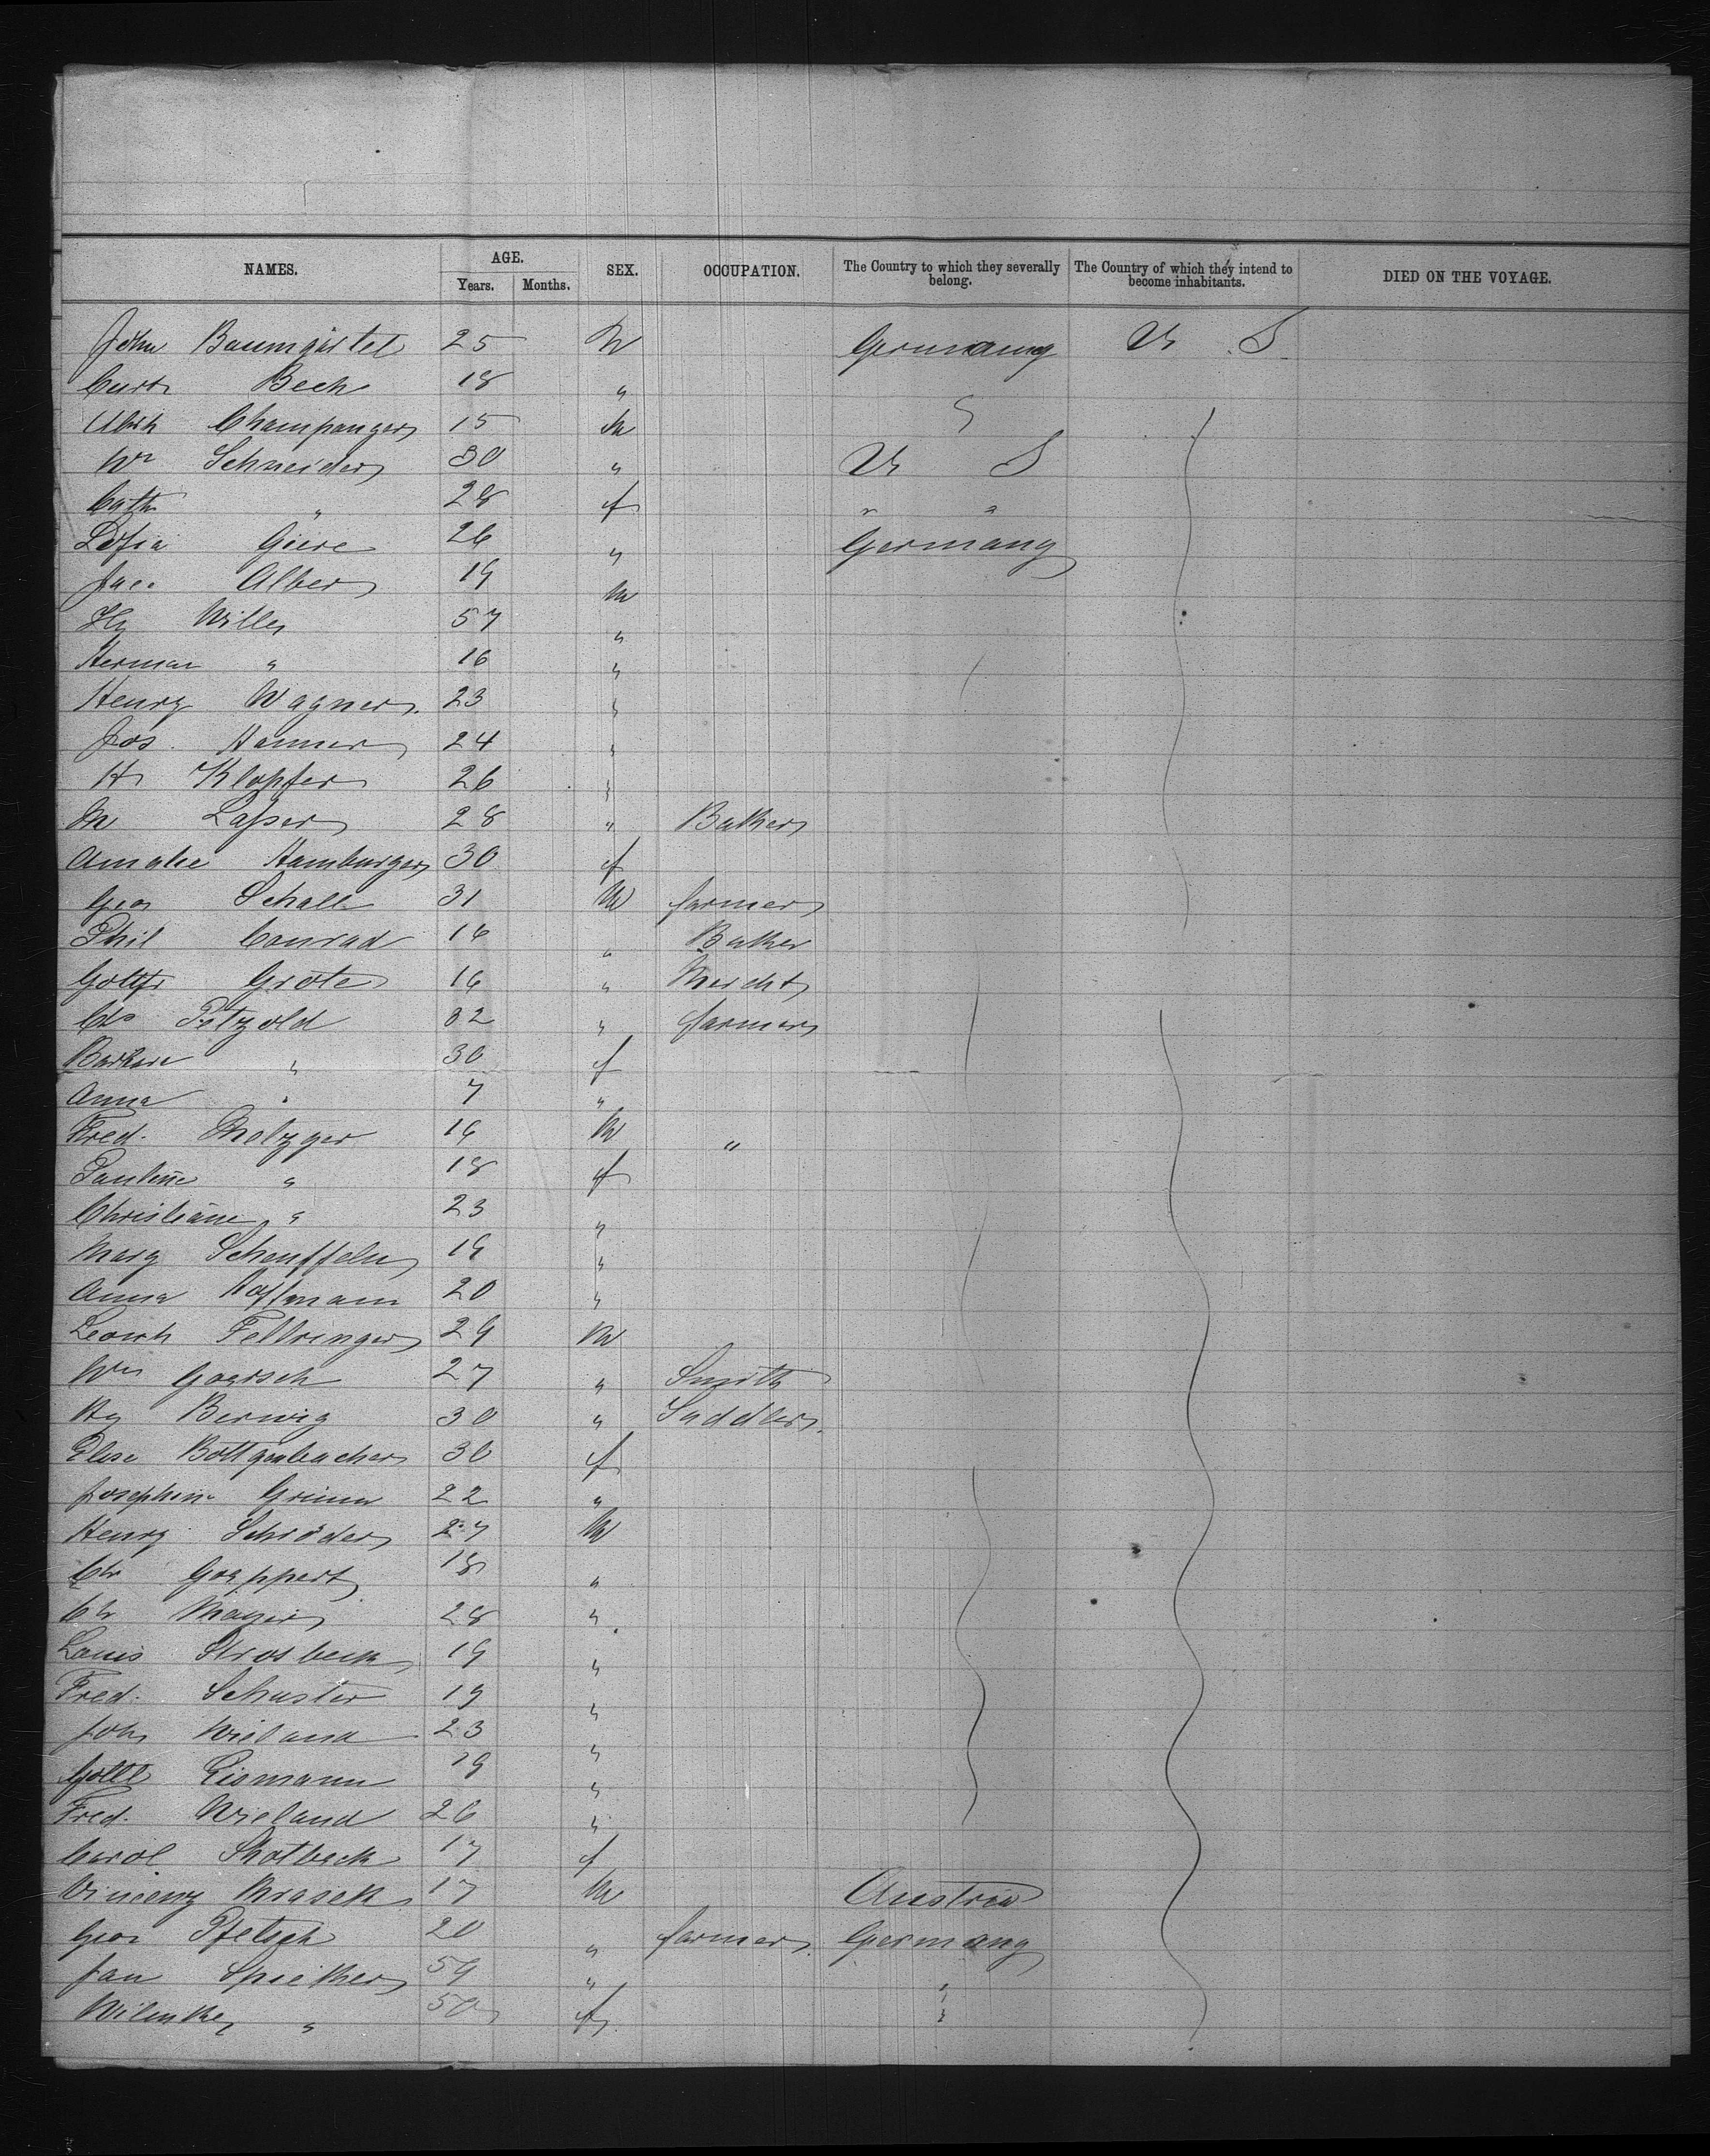 NAMES. AGE. Years. Months. SEX. OCCUPATION. The Country to which they severally belong. The Country of which they intend to become inhabitants. DIED ON THE VOYAGE.
John Baumgärtel 25 M Germany U S
Curt Beck 18 "
Champanger 15 M "
Wm Schneider 30 " U S
Cath " 28 f " "
Giere 26 " Germany
Jac. Alber 19 M
Hy Wille 57 "
Herman " 16 "
Henry Wagner 23 "
Jos. Hanner 24 "
H Klopfer 26 "
M Lasser 28 " Baker
Amalie Hamburger 30 f
Geo Schall 31 M farmer
Phil Conrad 16 " Baker
Gottfr Grote 16 " Mercht
Chs Petzold 32 " farmer
Barbara " 30 f
Anna " 7 "
Fred. Metzger 16 M "
Pauline " 18 f
Christiane " 23 "
Marg Scheuffeln 19 "
Anna Hoffmann 20 "
Leonh Feltringer 29 M
Wm Goersch 27 " Smith
Hy Berwig 30 " Saddler
Elise Bottgenbacher 30 f
Josephine Grimm 22 "
Henry Schröder 27 M
Chr Goeppert 18 "
Chr Mayer 28 "
Louis Strosbeck 19 "
Fred. Schuster 19 "
Joh Wieland 23 "
Gottl Eismann 19 "
Fred. Wieland 26 "
Carol Shotbeck 17 f
Vincenz Mrasek 17 M Austria
Geo Pfetsch 20 " farmer Germany
Jan Spieker 59 " "
" 50 f "